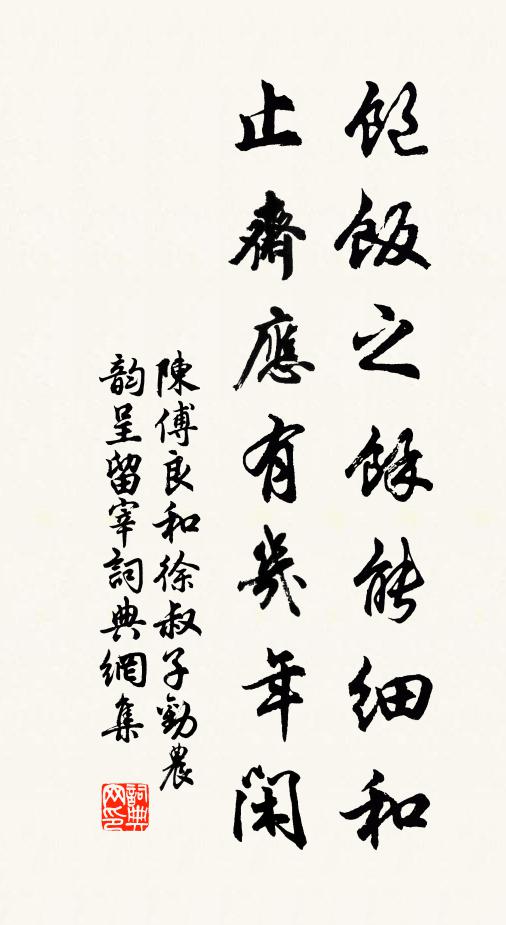 飽飯之餘能細和
止齋應有幾年閑
陳傅良和徐叔子勸農
韵呈留宰詞典網集
詞典网印